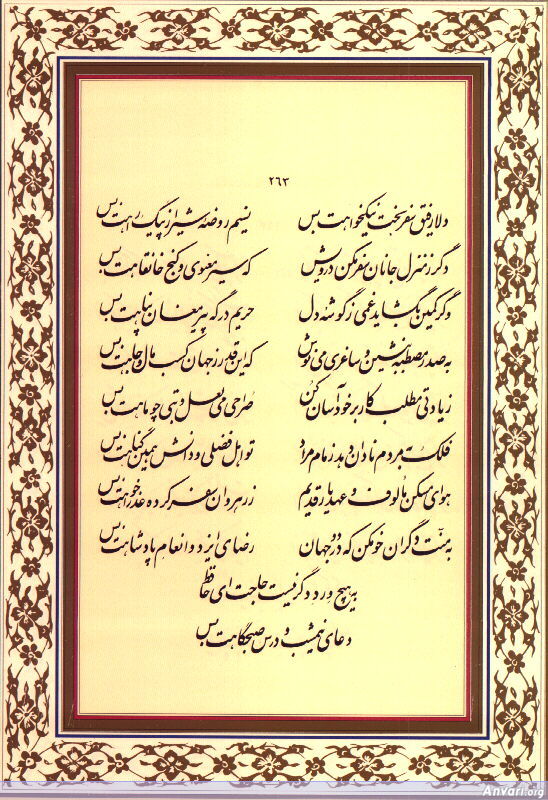 ۲۶۳
دلا رفیق سفر بخت نیکخواهت بس نسیم روضه شیراز پیک راهت بس
دگر ز منزل جانان سفر مکن درویش که سیر معنوی و کنج خانقاهت بس
وگر کمین بگشاید غمی ز گوشه دل حریم درگه پیر مغان پناهت بس
به صدر مصطبه بنشین و ساغری می نوش که این قدر ز جهان کسب مال و جاهت بس
زیادتی مطلب کار بر خود آسان کن صراحی می لعل و بتی چو ماهت بس
فلک به مردم نادان دهد زمام مراد تو اهل فضلی و دانش همین گناهت بس
هوای مسکن مألوف و عهد یار قدیم ز رهروان سفر کرده عذر خواهت بس
به منت دگران خو مکن که در دو جهان رضای ایزد و انعام پادشاهت بس
به هیچ ورد دگر نیست حاجت ای حافظ
دعای نیمشب و درس صبحگاهت بس
Anvari.org